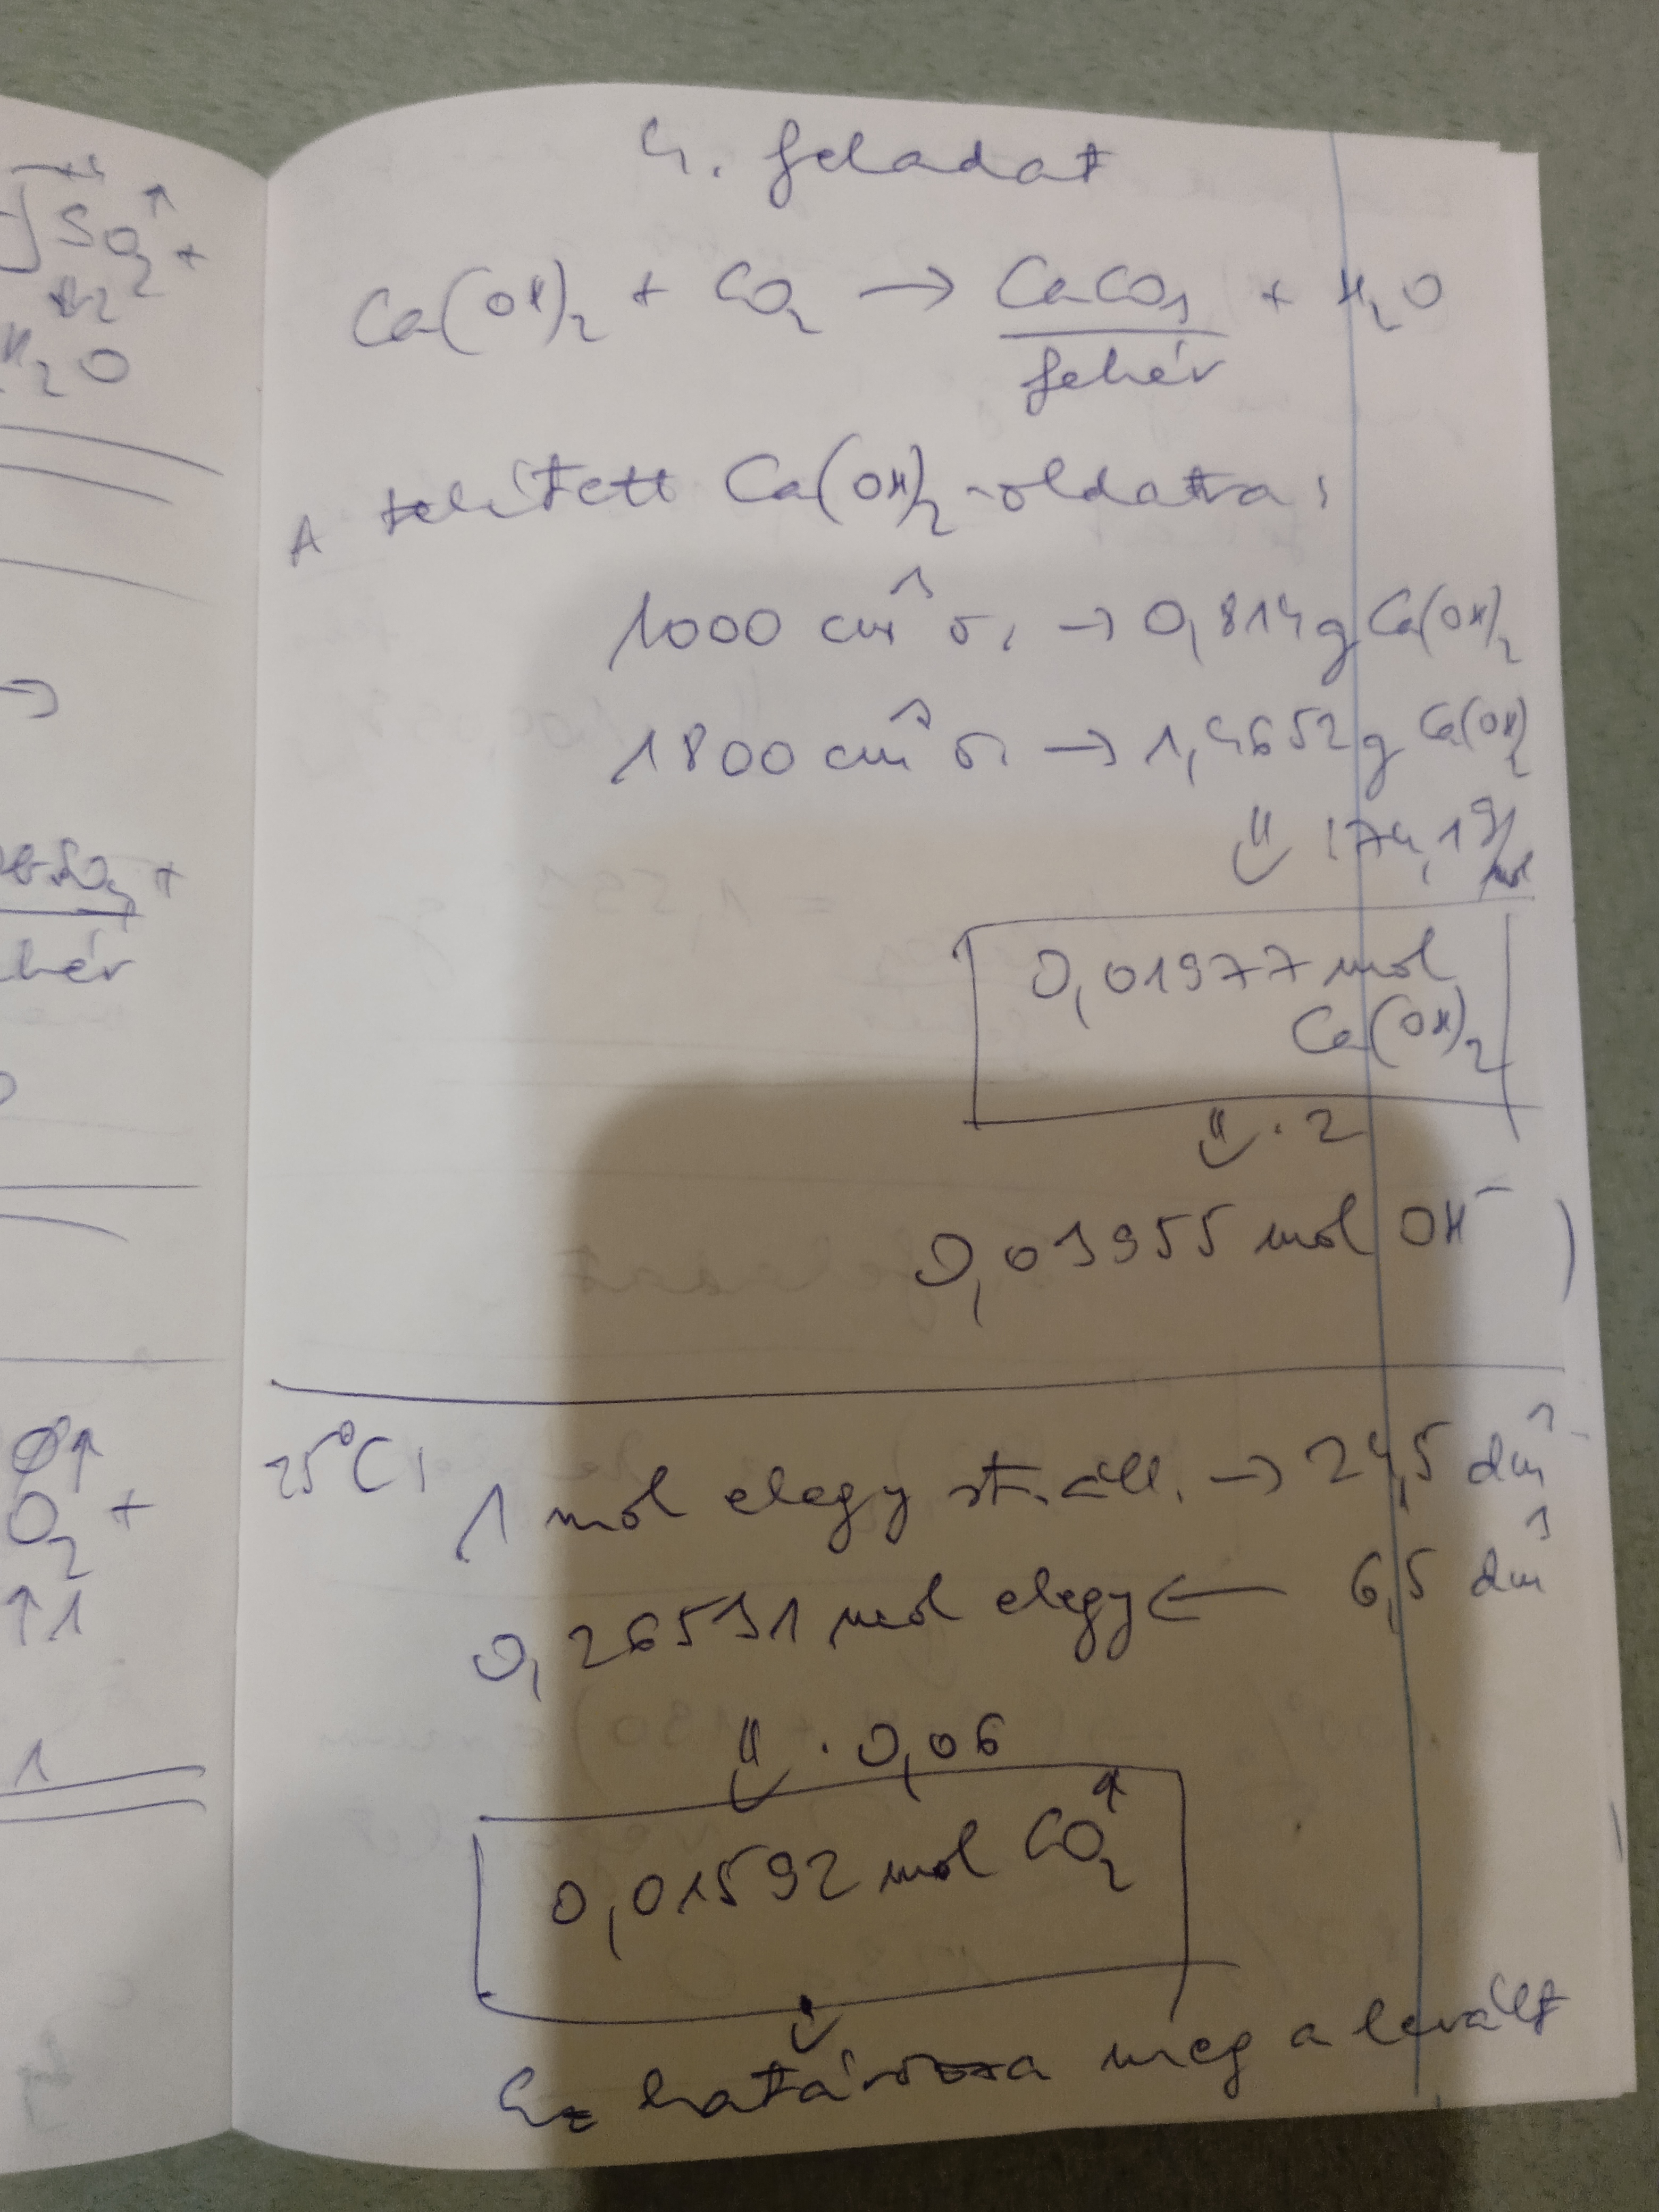 SO₂↑ +
H₂O
→
+
fehér
O₂ +
↑1
1
4. feladat
Ca(OH)₂ + CO₂ → CaCO₃ + H₂O
fehér
A telített Ca(OH)₂-oldatra:
1000 cm³ o. → 0,814 g Ca(OH)₂
1800 cm³ o. → 1,4652 g Ca(OH)₂
⇓ :74,1 g/mol
0,01977 mol
Ca(OH)₂
⇓ ·2
0,03955 mol OH⁻ )
25°C: 1 mol elegy st. áll. → 24,5 dm³
0,26531 mol elegy ← 6,5 dm³
⇓ · 0,06
0,01592 mol CO₂↑
↓
Ez határozza meg a levált